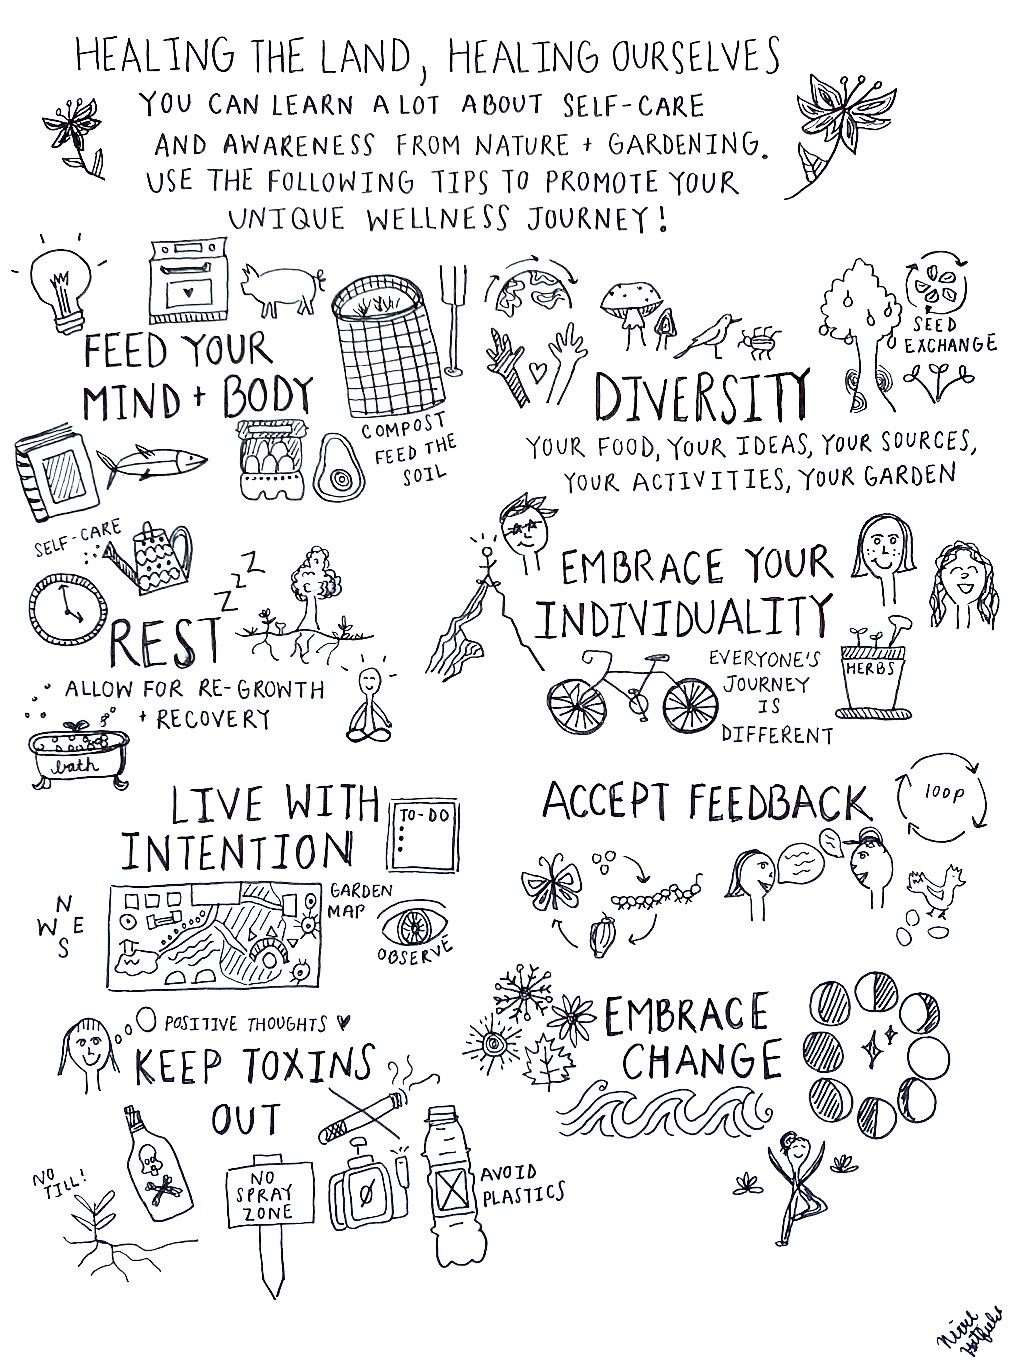 HEALING THE LAND, HEALING OURSELVES
YOU CAN LEARN A LOT ABOUT SELF-CARE
AND AWARENESS FROM NATURE + GARDENING.
USE THE FOLLOWING TIPS TO PROMOTE YOUR
UNIQUE WELLNESS JOURNEY!
FEED YOUR
MIND + BODY
COMPOST
FEED THE
SOIL
SEED
EXCHANGE
DIVERSITY
YOUR FOOD, YOUR IDEAS, YOUR SOURCES,
YOUR ACTIVITIES, YOUR GARDEN
SELF-CARE
Z Z Z
REST
ALLOW FOR RE-GROWTH
+ RECOVERY
bath
EMBRACE YOUR
INDIVIDUALITY
EVERYONE'S
JOURNEY
IS
DIFFERENT
HERBS
LIVE WITH
INTENTION
TO-DO
GARDEN
MAP
N
W E
S
OBSERVE
ACCEPT FEEDBACK
LOOP
POSITIVE THOUGHTS ♥
KEEP TOXINS
OUT
NO
TILL!
NO
SPRAY
ZONE
AVOID
PLASTICS
EMBRACE
CHANGE
Nicole Hatfield